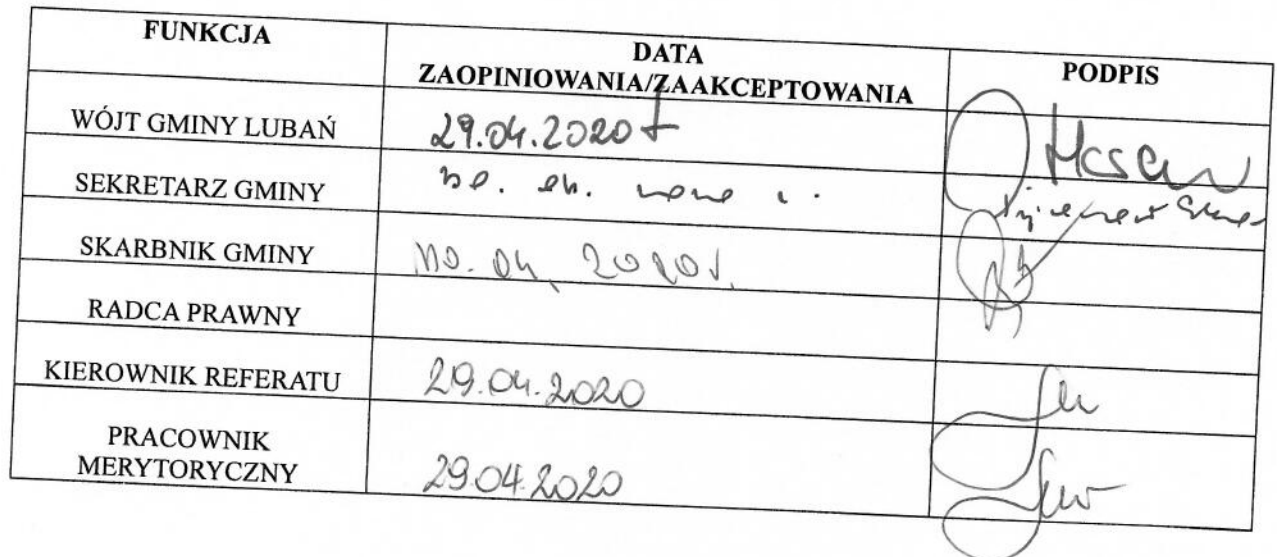 FUNKCJA
DATA
ZAOPINIOWANIA/ZAAKCEPTOWANIA
PODPIS
WÓJT GMINY LUBAŃ
29.04.2020
SEKRETARZ GMINY
SKARBNIK GMINY
04. 2020r.
RADCA PRAWNY
KIEROWNIK REFERATU
29.04.2020
PRACOWNIK
MERYTORYCZNY
29.04.2020